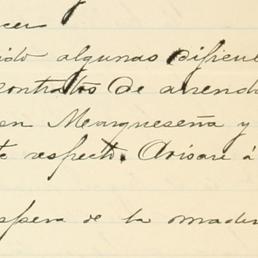 cer
ido algunas dificul
contratos de arrenda
en Mearqueseña y
te respecto. Avisare á
spera de la mader